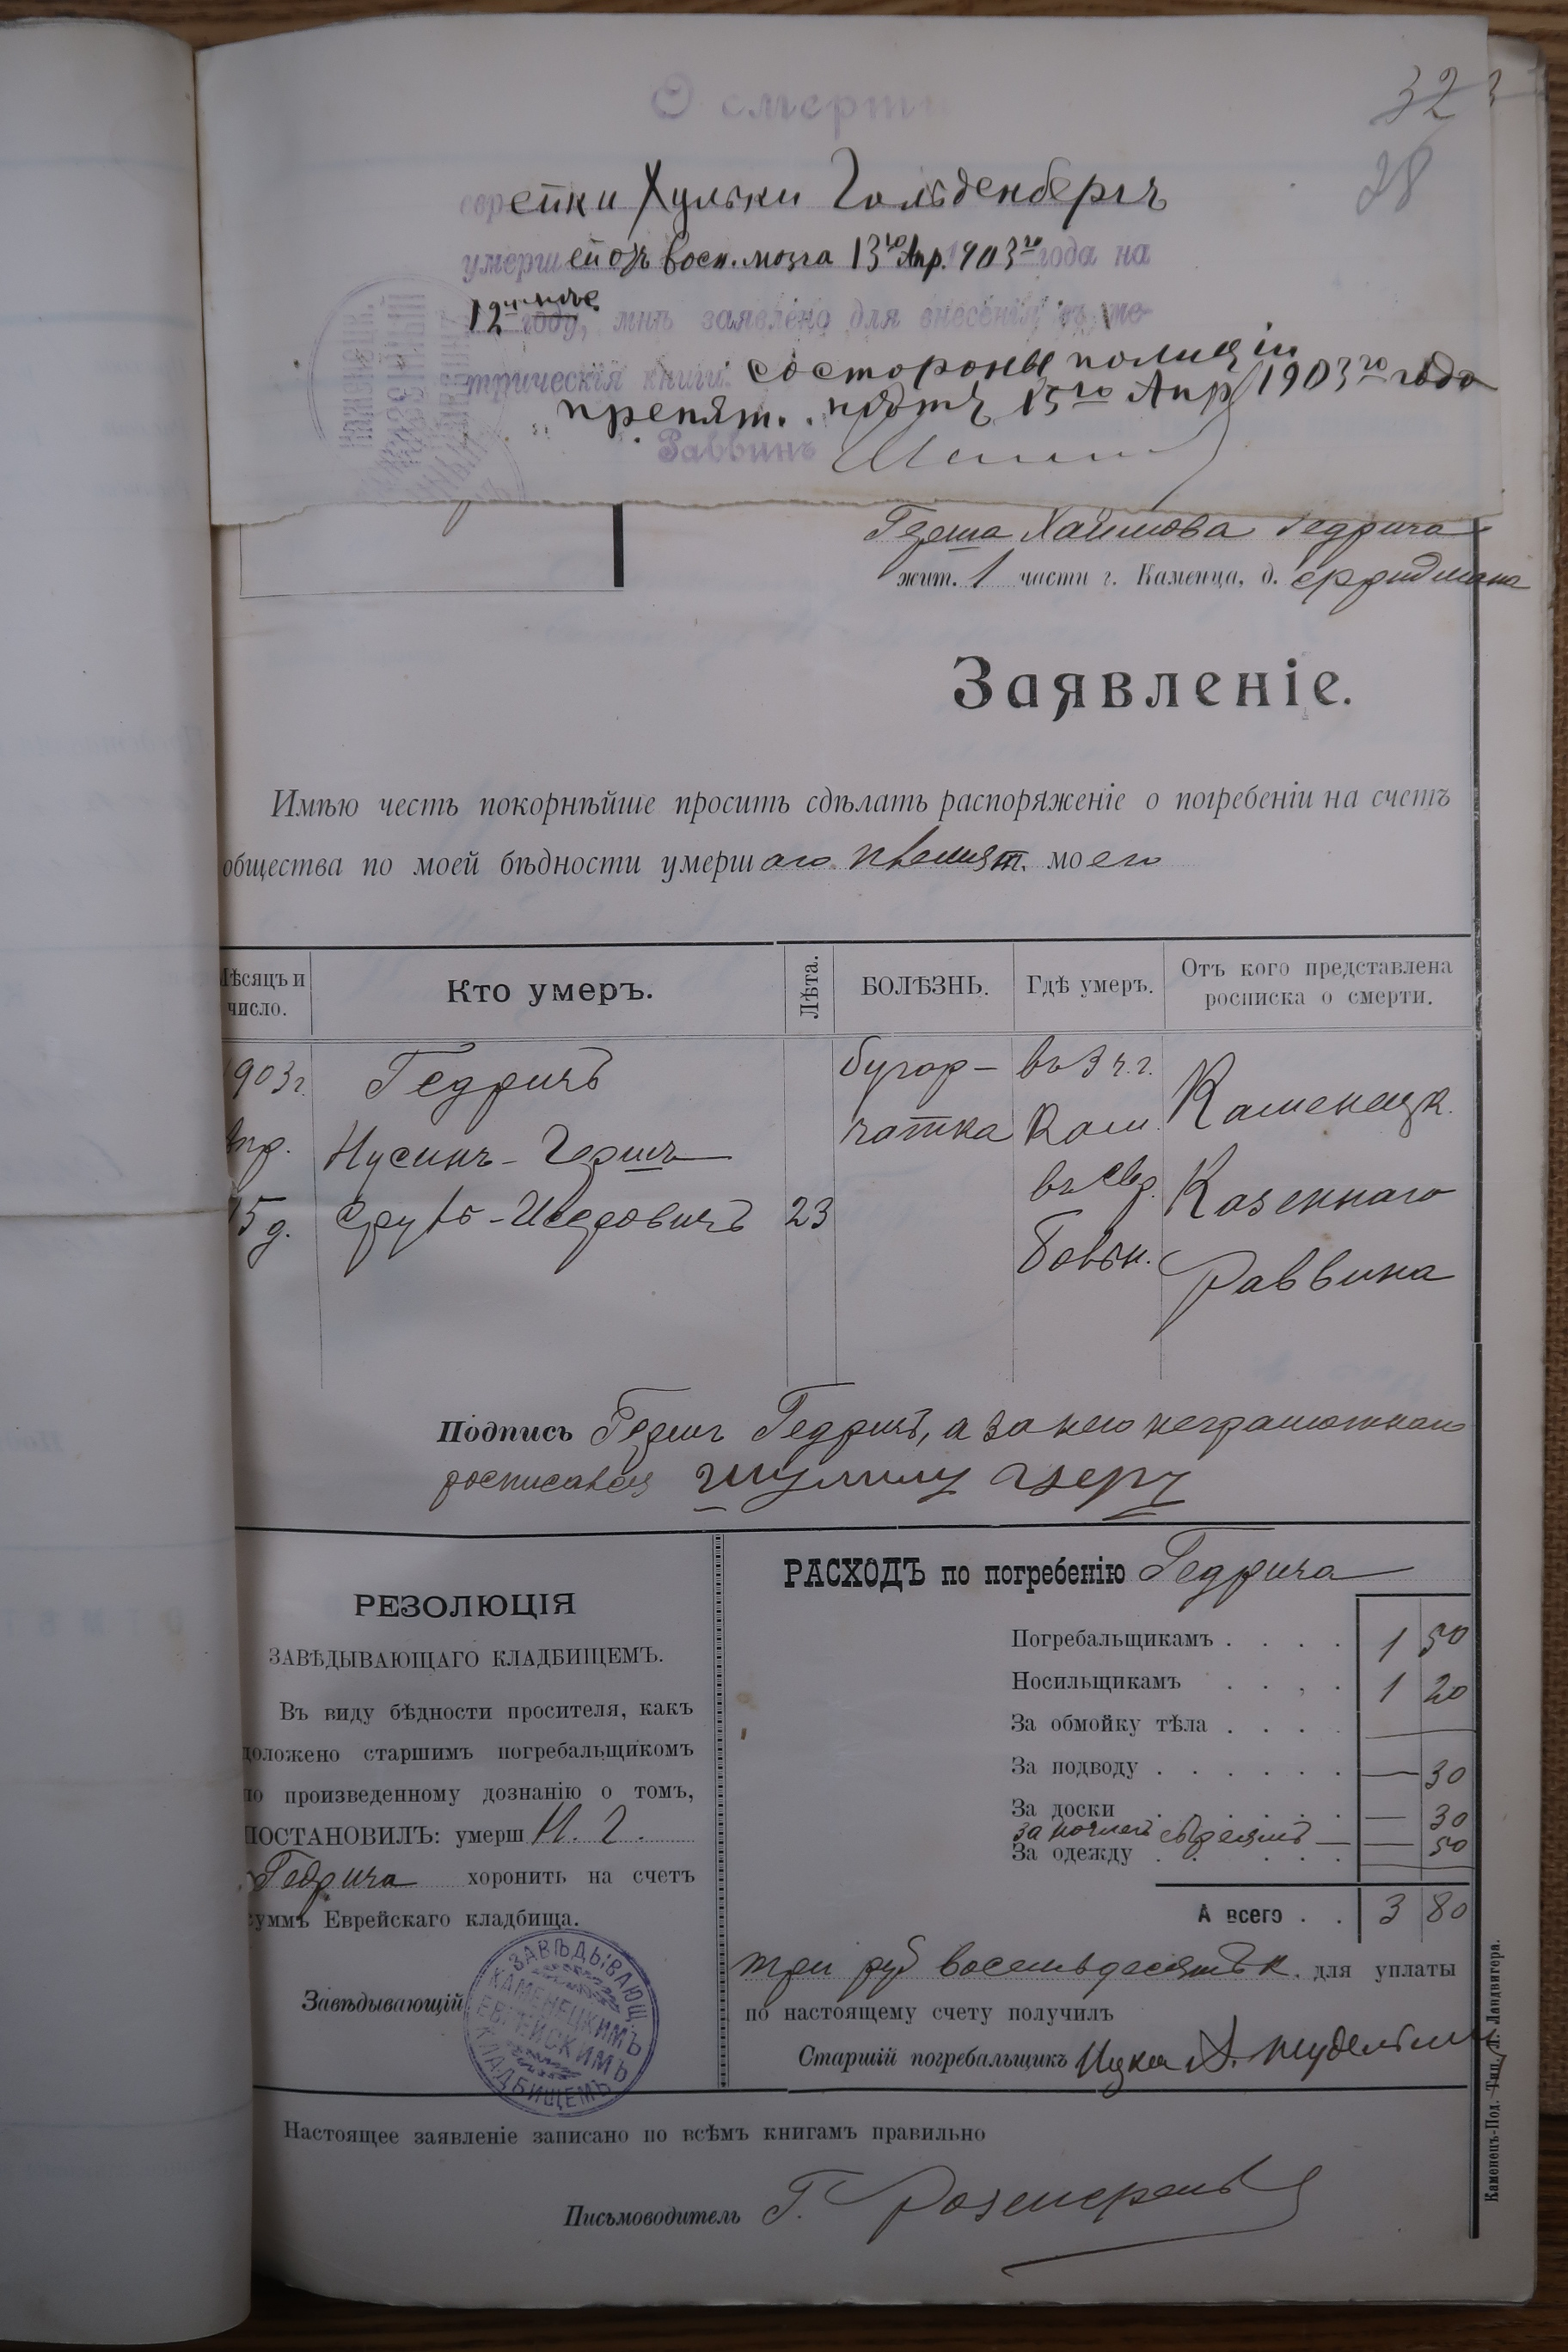 О смерти
32
28
еврейки Хульки Гольденбергъ
умершей отъ восп. мозга 13го Апр. 1903го года на
12 году, мнѣ заявлено для внесенія въ ме-
трическія книги. со стороны полиціи
препят. нѣтъ 15го Апр 1903го года
Раввинъ
Герша Хаимова Гедрича
жит. 1 части г. Каменца, д. Фридмана
Заявленіе.
Имѣю честь покорнѣйше просить сдѣлать распоряженіе о погребеніи на счетъ
общества по моей бѣдности умершаго племят. моего
Мѣсяцъ и число.
Кто умеръ.
Лѣта.
БОЛѢЗНЬ.
Гдѣ умеръ.
Отъ кого представлена росписка о смерти.
903г. Гедричъ бугор- въ 3 ч. г. Каменецк.
Апр. Нусинъ-Гершъ чатка Кам. Казеннаго
15 д. 23 въ Евр. Раввина
Подпись Гершъ Гедричъ, а за него неграмотнаго
росписался
РЕЗОЛЮЦІЯ
ЗАВѢДЫВАЮЩАГО КЛАДБИЩЕМЪ.
Въ виду бѣдности просителя, какъ
доложено старшимъ погребальщикомъ
по произведенному дознанію о томъ,
ПОСТАНОВИЛЪ: умерш Н. Г.
Гедрича хоронить на счетъ
суммъ Еврейскаго кладбища.
Завѣдывающій
ЗАВѢДЫВАЮЩ.
КАМЕНЕЦКИМЪ
ЕВРЕЙСКИМЪ
КЛАДБИЩЕМЪ
РАСХОДЪ по погребенію Гедрича
Погребальщикамъ . . . . 1 50
Носильщикамъ . . . . 1 20
За обмойку тѣла . . . . —
За подводу . . . . . . — 30
За доски . . . . . — 30
за ночлегъ — 50
За одежду . . . . . —
А всего . . 3 80
три руб восемьдесятъ к. для уплаты
по настоящему счету получилъ
Старшій погребальщикъ Ицко
Настоящее заявленіе записано по всѣмъ книгамъ правильно
Письмоводитель Г.
Каменецъ-Под. Тип. Л. Ландвигера.